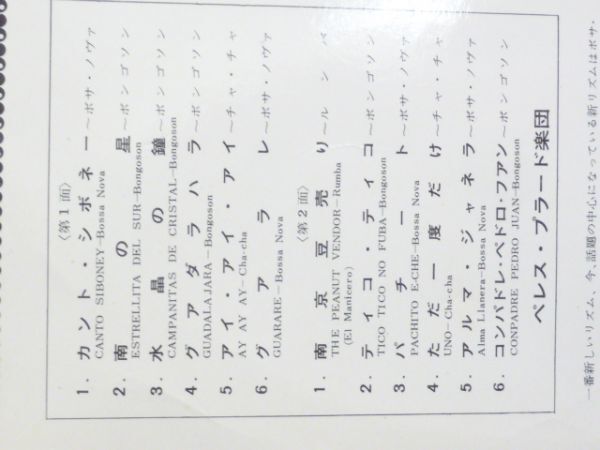 〈第1面〉
1. カント・シボネー～ボサ・ノヴァ
CANTO SIBONEY—Bossa Nova
2. 南の星～ボンゴソン
ESTRELLITA DEL SUR—Bongoson
3. 水晶の鐘～ボンゴソン
CAMPANITAS DE CRISTAL—Bongoson
4. グァダラハラ～ボンゴソン
GUADALAJARA—Bongoson
5. アイ・アイ・アイ～チャ・チャ
AY AY AY—Cha-cha
6. グァラレ～ボサ・ノヴァ
GUARARE—Bossa Nova
〈第2面〉
1. 南京豆売り～ルンバ
THE PEANUT VENDOR—Rumba
(El Manicero)
2. ティコ・ティコ～ボンゴソン
TICO TICO NO FUBA—Bongoson
3. パチート～ボサ・ノヴァ
PACHITO E-CHE—Bossa Nova
4. ただ一度だけ～チャ・チャ
UNO—Cha-cha
5. アルマ・ジャネラ～ボサ・ノヴァ
Alma Llanera—Bossa Nova
6. コンパドレ・ペドロ・ファン～ボンゴソン
CONPADRE PEDRO JUAN—Bongoson
ペレス・プラード楽団
一番新しいリズム、今、話題の中心になっている新リズムはボサ・